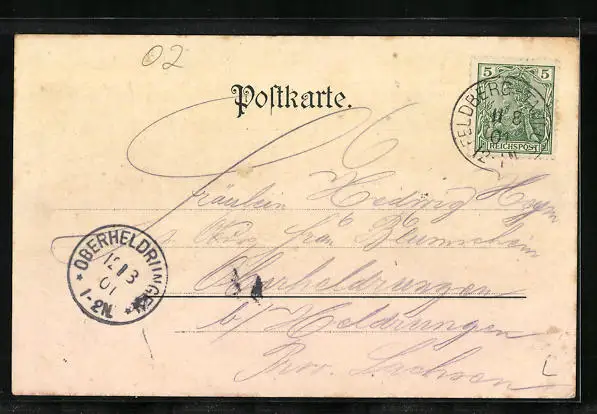 02
Postkarte.
5 5
REICHSPOST
FELDBERG
11 8
01
12-1N
Fräulein Hedwig Heym
Frau
Oberheldrungen
b/ Heldrungen
Prov. Sachsen
* OBERHELDRUNGEN *
12 8
01
1-2N.
L